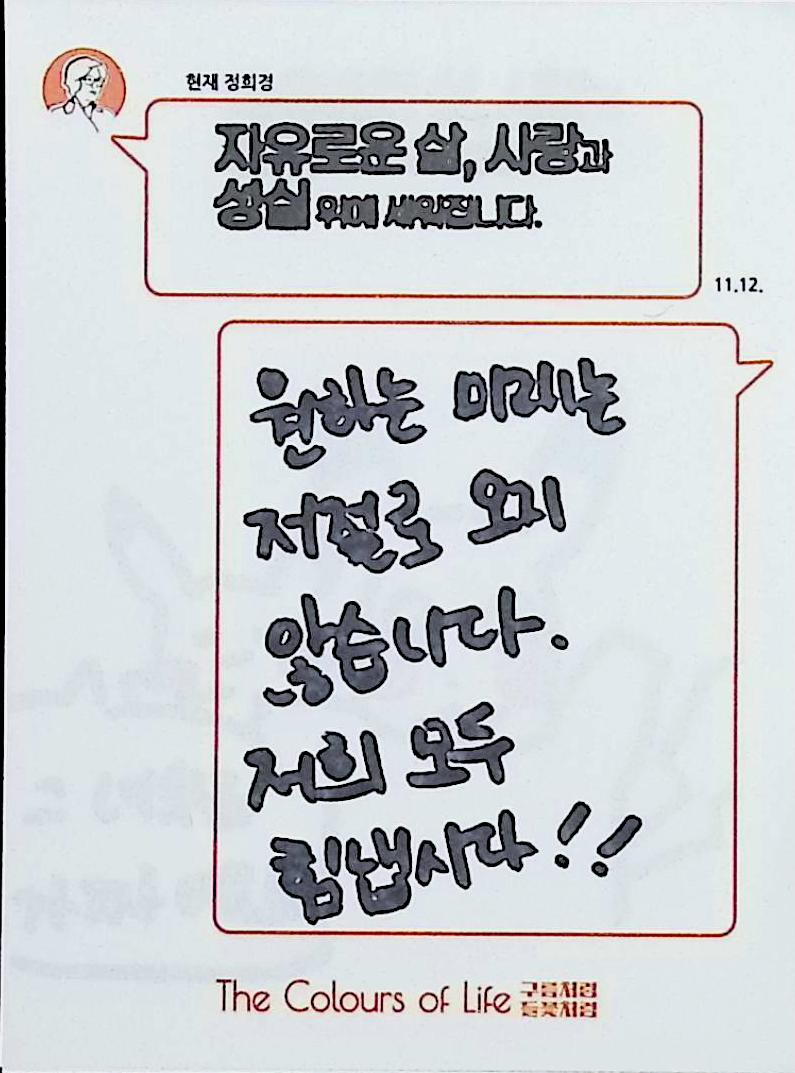 현재 정희경
자유로운 삶, 사랑과
성실 위에 세워집니다.
11.12.
원하는 미래는
저절로 오지
않습니다.
저희 모두
힘냅시다!!
The Colours of Life 구름처럼
들꽃처럼